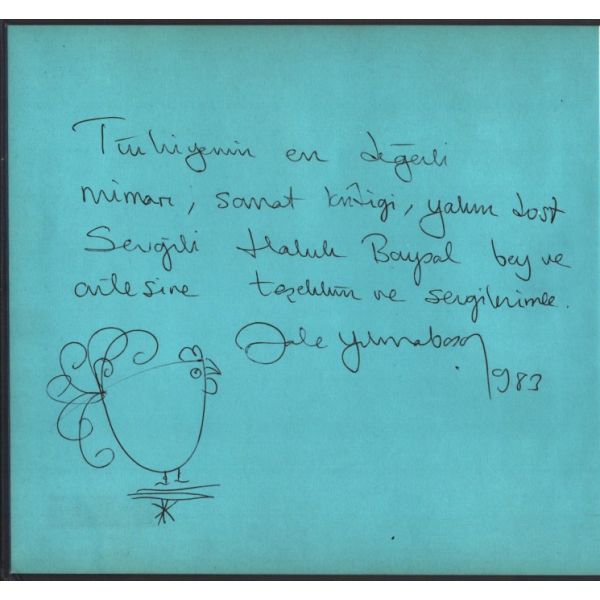 Türkiyenin en değerli
mimarı, sanat kritiği, yakın dost
Sevgili Haluk Baysal bey ve
ailesine teşekkür ve sevgilerimle.
Jale Yılmabaşar
1983